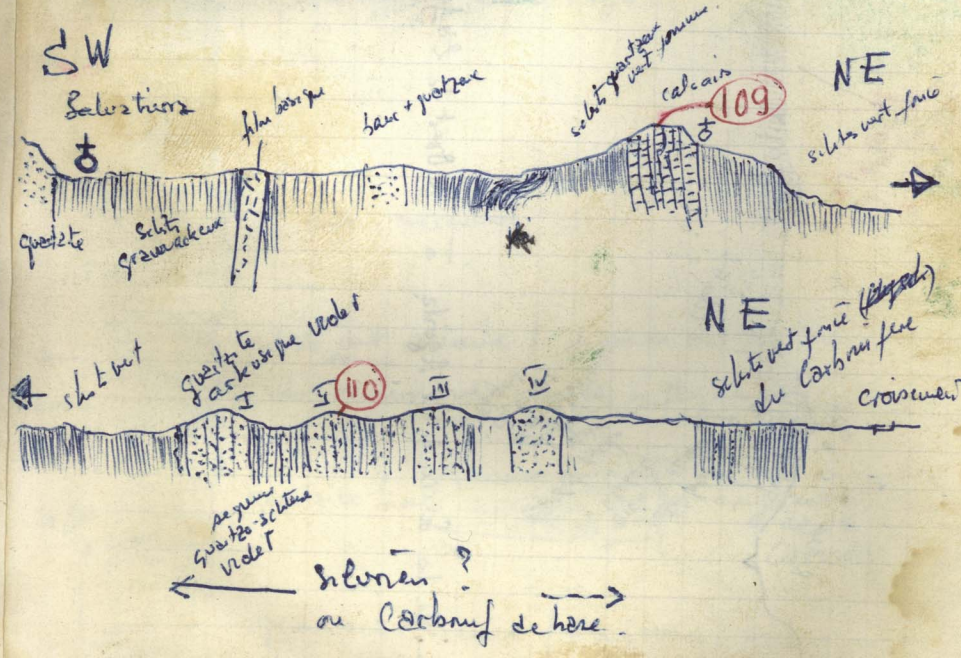 SW
Salvatierra
filon basique
banc + quartzeux
schistes quartzeux
vert
calcaire
109
NE
schistes vert foncé
quartzite
schistes
grauwackeux
NE
vert
quartzite
arkosique violet
I
II
110
III
IV
schistes vert foncé
du Carbonifère
croisement
séquence
quartzo-schisteuse
violet
Silurien ?
ou Carbonif de base.